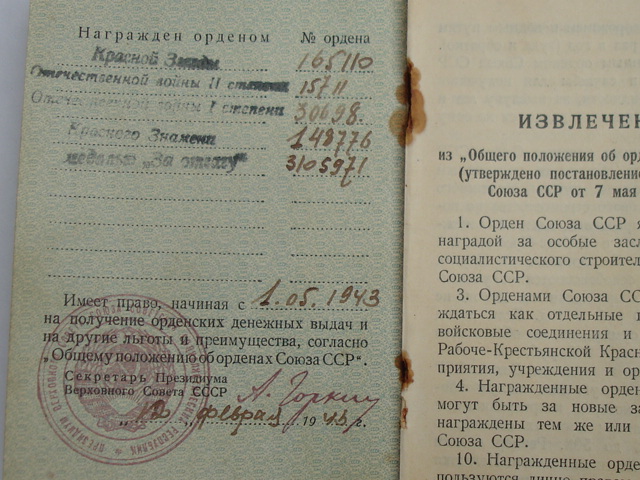 Награжден орденом № ордена
Красной Звезды 165110
Отечественной войны II степени 15711
Отечественной войны I степени 30698
Красного Знамени 148776
медалью „За отвагу" 3105971
Имеет право, начиная с 1.05.1943
на получение орденских денежных выдач и
на другие льготы и преимущества, согласно
„Общему положению об орденах Союза ССР".
Секретарь Президиума
Верховного Совета СССР А. Горкин
февраля 19 г.
ИЗВЛЕЧЕН
из „Общего положения об орд
(утверждено постановление
Союза ССР от 7 мая
1. Орден Союза ССР я
наградой за особые засл
социалистического строител
Союза ССР.
3. Орденами Союза СС
ждаться как отдельные
войсковые соединения и
Рабоче-Крестьянской Красн
приятия, учреждения и ор
4. Награжденные орден
могут быть за новые за
награждены тем же или
Союза ССР.
10. Награжденные орде